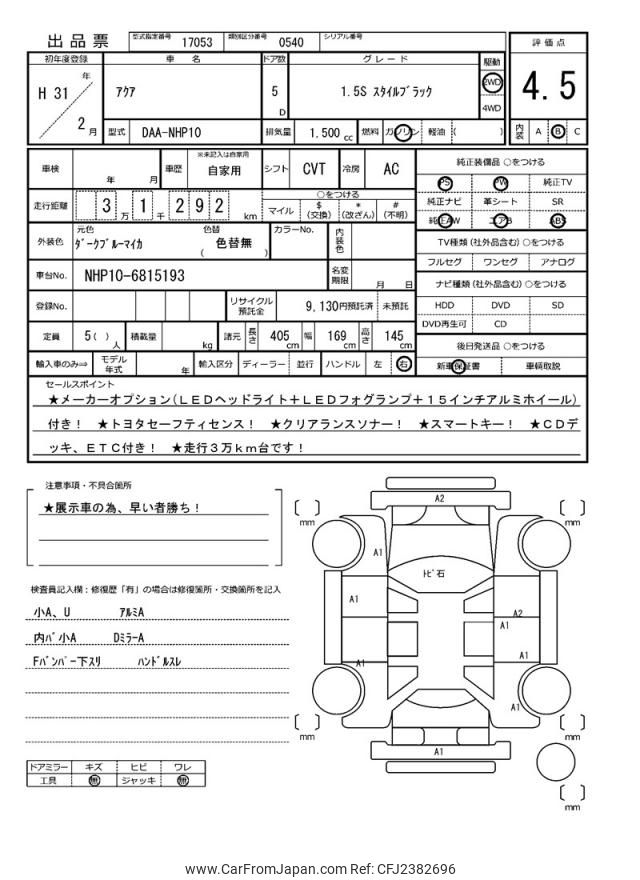 出品票 型式指定番号 17053 類別区分番号 0540 シリアル番号
初年度登録 車名 ドア数 グレード 駆動 評価点
H 31 年 2 月 アクア 5 D 1.5S スタイルブラック 2WD 4WD 4.5
型式 DAA-NHP10 排気量 1.500 cc 燃料 ガソリン 軽油 ( ) 内装 A B C
車検 年 月 車歴 ※未記入は自家用 自家用 シフト CVT 冷房 AC
走行距離 3 万 1 千 2 9 2 km ○をつける
マイル $ (交換) * (改ざん) # (不明)
外装色 元色 ダークブルーマイカ 色替 ( 色替無 ) カラーNo. 内装色
車台No. NHP10-6815193 名変期限 月 日
登録No. リサイクル預託金 9,130円預託済 未預託
定員 5( ) 人 積載量 kg 諸元 長さ 405 cm 幅 169 cm 高さ 145 cm
輸入車のみ⇒ モデル年式 年 輸入区分 ディーラー 並行 ハンドル 左 右
純正装備品 ○をつける
PS PW 純正TV
純正ナビ 革シート SR
純正AW エアB ABS
TV種類 (社外品含む) ○をつける
フルセグ ワンセグ アナログ
ナビ種類 (社外品含む) ○をつける
HDD DVD SD
DVD再生可 CD
後日発送品 ○をつける
新車保証書 車輌取説
セールスポイント
★メーカーオプション(LEDヘッドライト+LEDフォグランプ+15インチアルミホイール)
付き! ★トヨタセーフティセンス! ★クリアランスソナー! ★スマートキー! ★CDデ
ッキ、ETC付き! ★走行3万km台です!
注意事項・不具合箇所
★展示車の為、早い者勝ち!
検査員記入欄:修復歴「有」の場合は修復箇所・交換箇所を記入
小A、U アルミA
内バ小A DミラーA
Fバンパー下スリ ハンドルスレ
ドアミラー キズ ヒビ ワレ
工具 無 ジャッキ 無
A2
mm mm
A1
トビ石
A1 A2
A1
A1 A1
A1
mm mm
A1
mm
www.CarFromJapan.com Ref: CFJ2382696